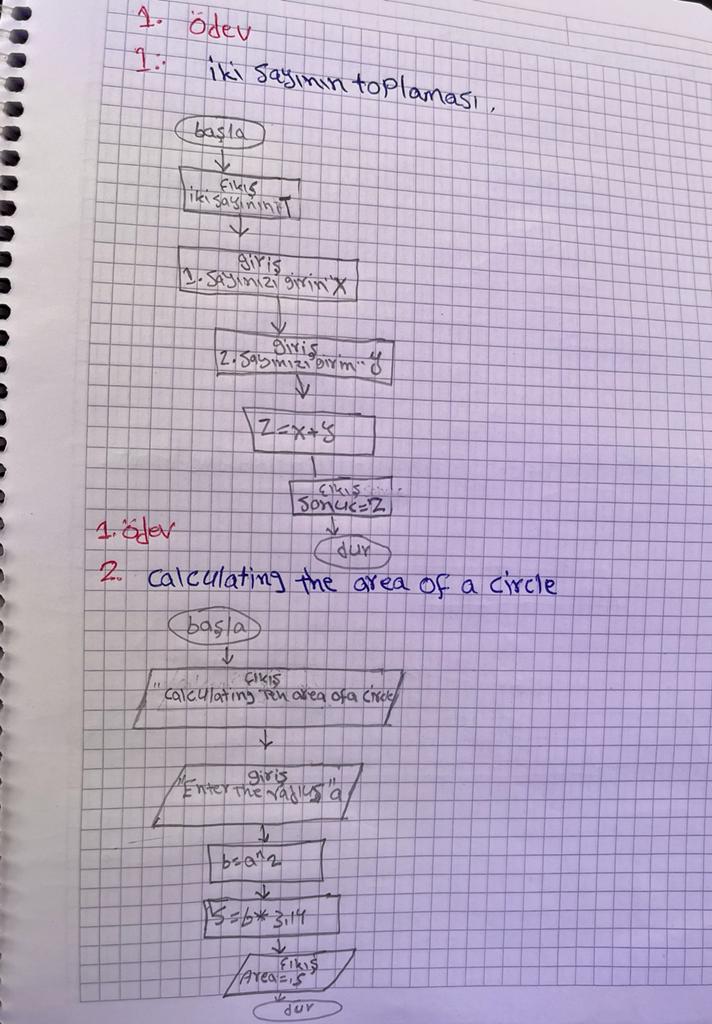 1. ödev
1. iki sayının toplaması.
başla
çıkış
iki sayının T
giriş
1. sayınızı girin" x
giriş
2. sayınızı girin" y
Z=x+y
çıkış
sonuc=Z
dur
1. ödev
2. calculating the area of a circle
başla
çıkış
"calculating area of a circle
giriş
"Enter the radius" a
b=a^2
S=b*3,14
çıkış
Area=,s
dur